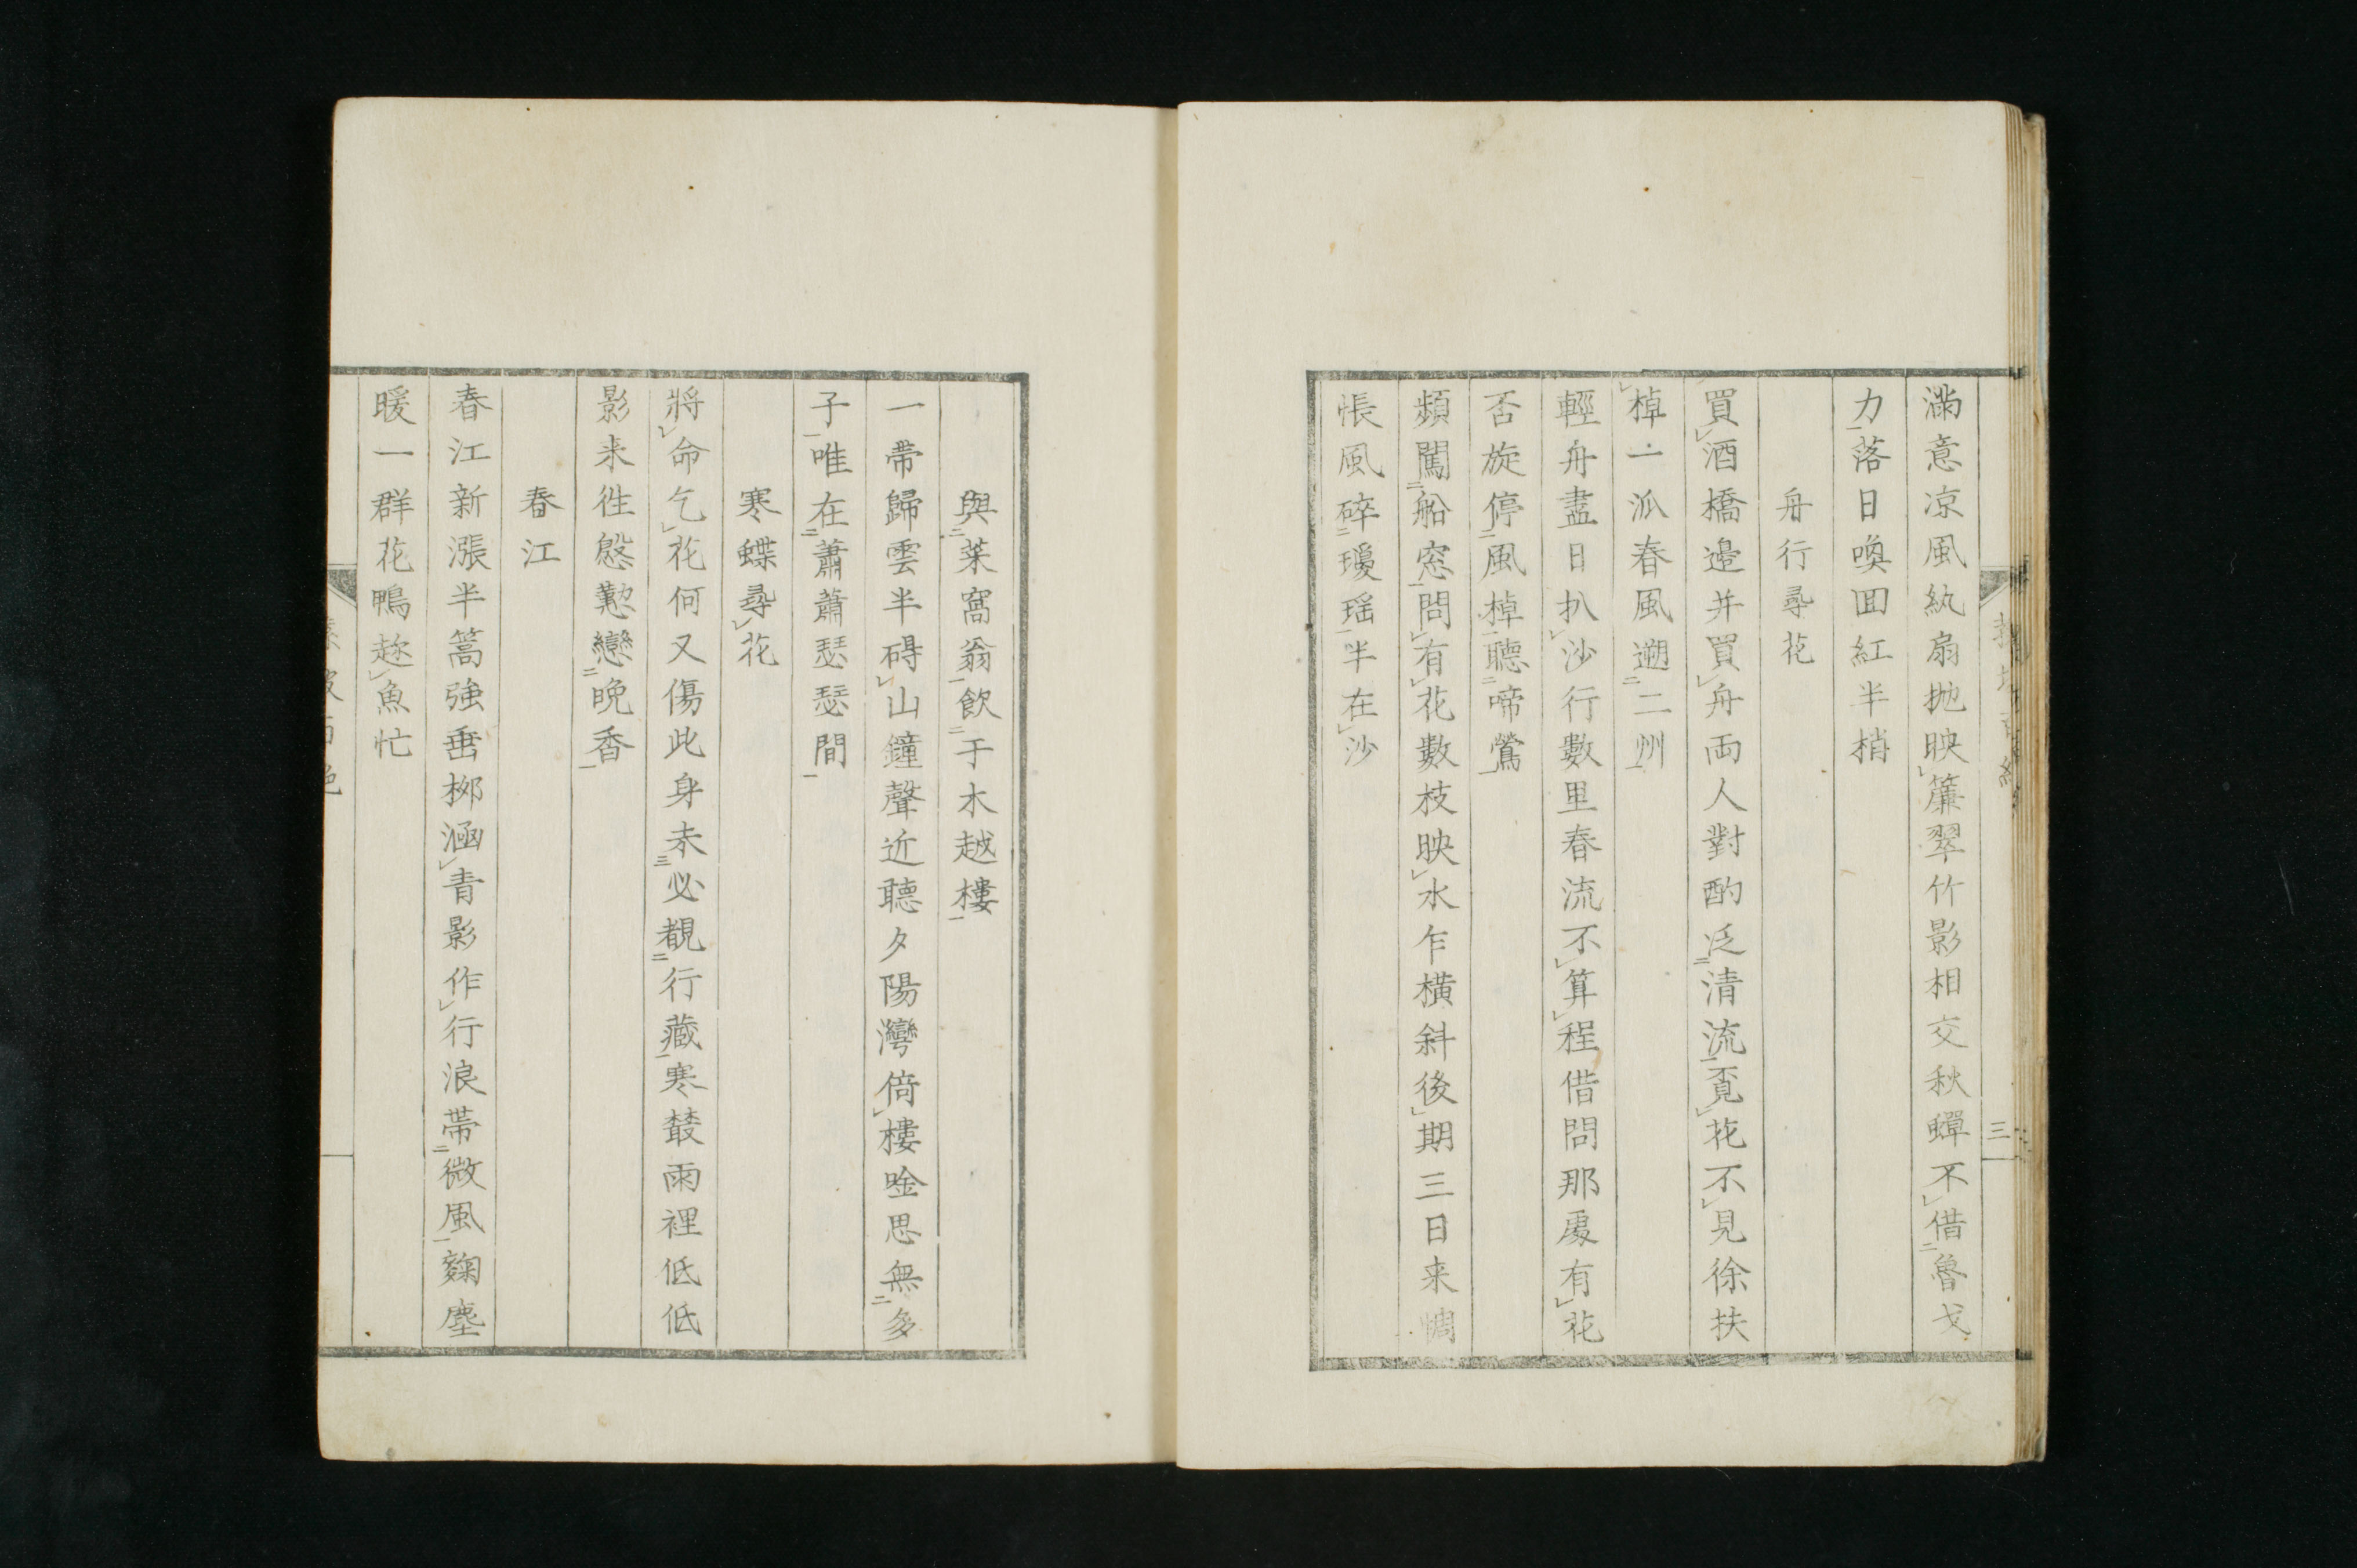 滿意凉風紈扇抛映簾翠竹影相交秋蟬不借魯戈
力落日喚回紅半梢
舟行尋花
買酒橋邉并買舟両人對酌泛清流覔花不見徐扶
棹一派春風遡二州
輕舟盡日扒沙行數里春流不算程借問那處有花
否旋停風棹聽啼鶯
頻闖船窓問有花數枝映水乍橫斜後期三日来惆
悵風碎瓊瑶半在沙
三
與菜窩翁飲于木越樓
一帯歸雲半碍山鐘聲近聽夕陽灣倚樓唫思無多
子唯在蕭蕭瑟瑟間
寒蝶尋花
將命乞花何又傷此身未必覩行藏寒叢雨裡低低
影来徃慇懃戀晩香
春江
春江新漲半篙強垂柳涵青影作行浪帯微風麴塵
暖一群花鴨趂魚忙